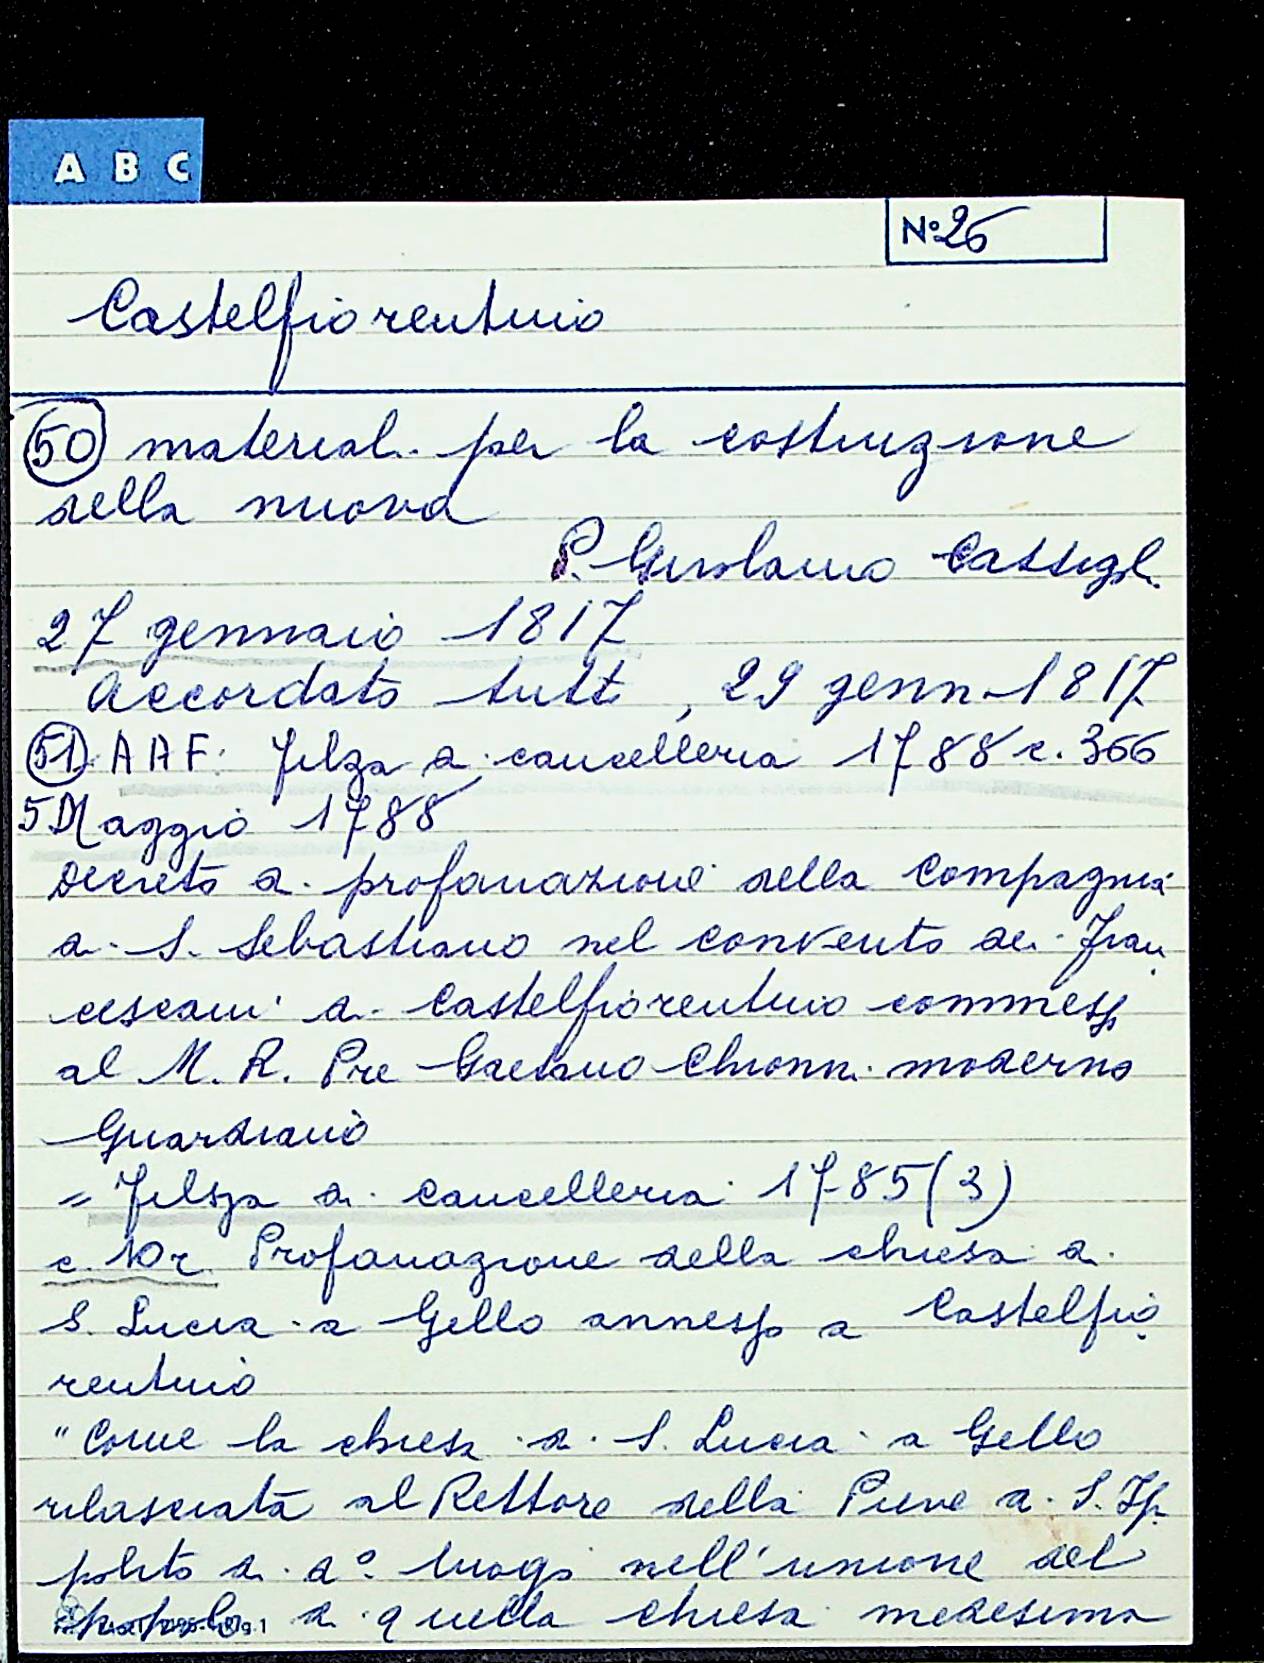 A B C
N° 26
Castelfiorentino
50 materiali per la costruzione
della nuova
P. Girolamo Cassigl.
27 gennaio 1817
Accordato tutt, 29 genn. 1817
51 AAF: Filza di cancelleria 1788 c. 366
5 Maggio 1788
Decreto di profanazione della Compagnia
di S. Sebastiano nel convento dei Fran
cescani di Castelfiorentino commesso
al M. R. Pre Gaetano Chionni moderno
Guardiano
= Filza di cancelleria 1785 (3)
c. 10r. Profanazione della chiesa di
S. Lucia a Gello annesso a Castelfio
rentino
"Come la chiesa di S. Lucia a Gello
rilasciata al Rettore della Pieve di S. Ip
polito di d° luogo nell'unione del
popolo di quella chiesa medesima